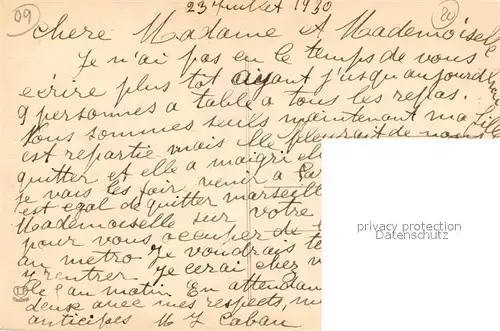 09
23 Juillet 1930
20
Chere Madame et Mademoiselle
Je n'ai pas eu le temps de vous
ecrire plus tot ayant j'usqu aujourd'hui
9 personnes a table a tous les repas.
Nous sommes seuls maintenant ma fille
est repartie mais elle pleurait de nous
quitter et elle a maigri
je vais les faire venir a
est egal de quitter marseille
Mademoiselle sur votre
pour vous occuper de
au metro Je voudrais
y rentrer Je serai chez
au matin En attendant
deux avec mes respects,
anticipés
privacy protection
Datenschutz